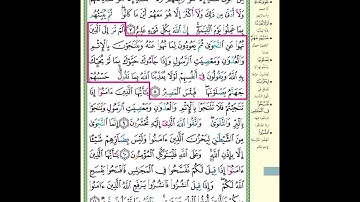 وَلَآ أَدْنَىٰ مِن ذَٰلِكَ وَلَآ أَكْثَرَ إِلَّا هُوَ مَعَهُمْ أَيْنَ مَا كَانُوا۟ ۖ ثُمَّ يُنَبِّئُهُم
بِمَا عَمِلُوا۟ يَوْمَ ٱلْقِيَٰمَةِ ۚ إِنَّ ٱللَّهَ بِكُلِّ شَىْءٍ عَلِيمٌ ٧ أَلَمْ تَرَ إِلَى ٱلَّذِينَ
نُهُوا۟ عَنِ ٱلنَّجْوَىٰ ثُمَّ يَعُودُونَ لِمَا نُهُوا۟ عَنْهُ وَيَتَنَٰجَوْنَ بِٱلْإِثْمِ
وَٱلْعُدْوَٰنِ وَمَعْصِيَتِ ٱلرَّسُولِ وَإِذَا جَآءُوكَ حَيَّوْكَ بِمَا لَمْ يُحَيِّكَ
بِهِ ٱللَّهُ وَيَقُولُونَ فِىٓ أَنفُسِهِمْ لَوْلَا يُعَذِّبُنَا ٱللَّهُ بِمَا نَقُولُ ۚ حَسْبُهُمْ
جَهَنَّمُ يَصْلَوْنَهَا ۖ فَبِئْسَ ٱلْمَصِيرُ ٨ يَٰٓأَيُّهَا ٱلَّذِينَ ءَامَنُوٓا۟ إِذَا
تَنَٰجَيْتُمْ فَلَا تَتَنَٰجَوْا۟ بِٱلْإِثْمِ وَٱلْعُدْوَٰنِ وَمَعْصِيَتِ ٱلرَّسُولِ وَتَنَٰجَوْا۟
بِٱلْبِرِّ وَٱلتَّقْوَىٰ ۖ وَٱتَّقُوا۟ ٱللَّهَ ٱلَّذِىٓ إِلَيْهِ تُحْشَرُونَ ٩ إِنَّمَا ٱلنَّجْوَىٰ
مِنَ ٱلشَّيْطَٰنِ لِيَحْزُنَ ٱلَّذِينَ ءَامَنُوا۟ وَلَيْسَ بِضَآرِّهِمْ شَيْـًٔا
إِلَّا بِإِذْنِ ٱللَّهِ ۚ وَعَلَى ٱللَّهِ فَلْيَتَوَكَّلِ ٱلْمُؤْمِنُونَ ١٠ يَٰٓأَيُّهَا ٱلَّذِينَ
ءَامَنُوٓا۟ إِذَا قِيلَ لَكُمْ تَفَسَّحُوا۟ فِى ٱلْمَجَٰلِسِ فَٱفْسَحُوا۟ يَفْسَحِ
ٱللَّهُ لَكُمْ ۖ وَإِذَا قِيلَ ٱنشُزُوا۟ فَٱنشُزُوا۟ يَرْفَعِ ٱللَّهُ ٱلَّذِينَ